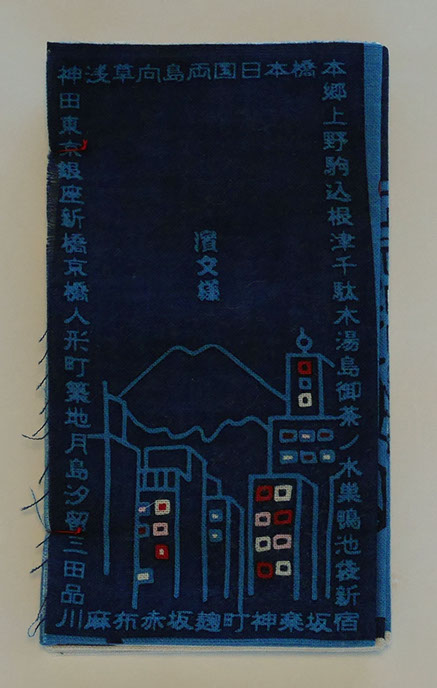 神浅草向島両国日本橋本
郷上野駒込根津千駄木湯島御茶ノ水巣鴨池袋新宿
田東京銀座新橋京橋人形町築地月島汐留三田品川
麻布赤坂麹町神楽坂
濱文様